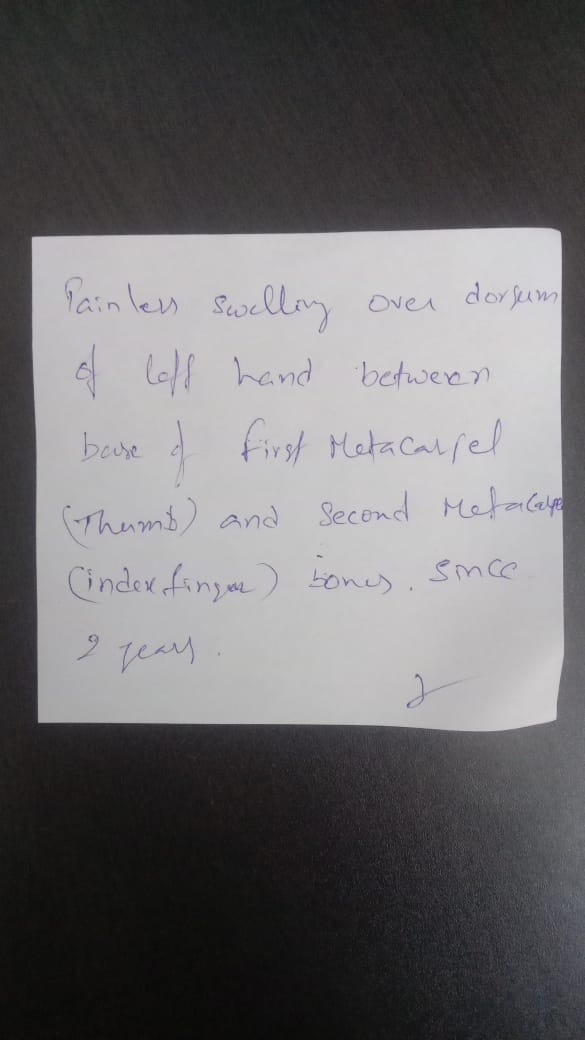 Painless swelling over dorsum
of left hand between
base of first Metacarpel
(Thumb) and Second Metacarpel
(index finger) bones. Since
2 years.